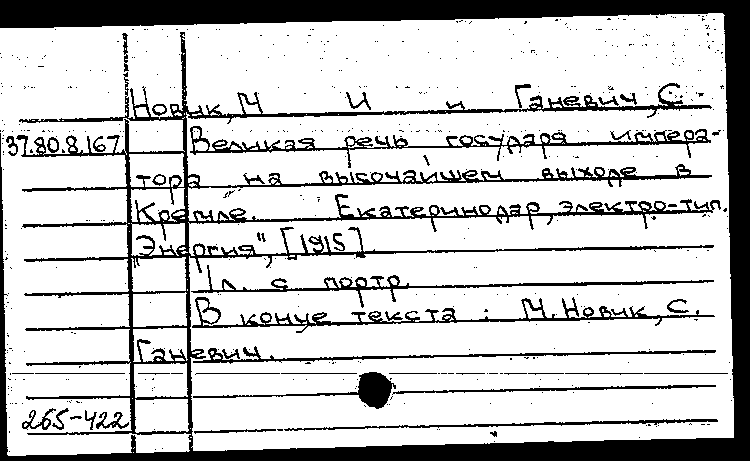 Новик, М И и Ганевич, С.
37.80.8.167. Великая речь государя импера-
тора на высочайшем выходе в
Кремле. Екатеринодар, электро-тип.
„Энергия", [1915]
1 л. с портр.
В конце текста: М. Новик, С.
Ганевич.
265-422